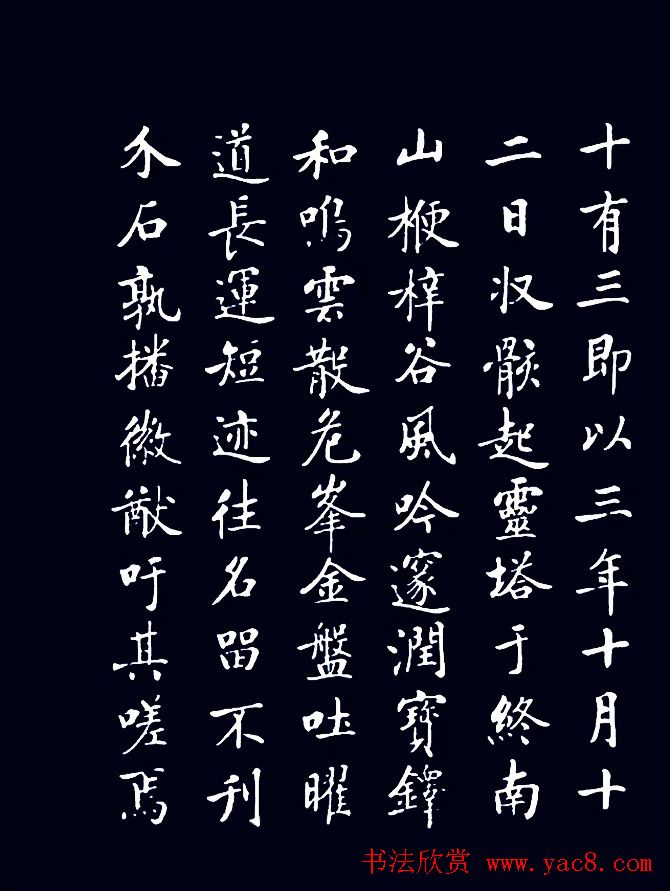 十有三即以三年十月十
二日収骸起靈塔于終南
山楩梓谷風吟邃潤寶鐸
和鳴雲散危峯金盤吐曜
道長運短迹往名留不刋
介石孰播徽猷吁其嗟焉
书法欣赏 www.yac8.com